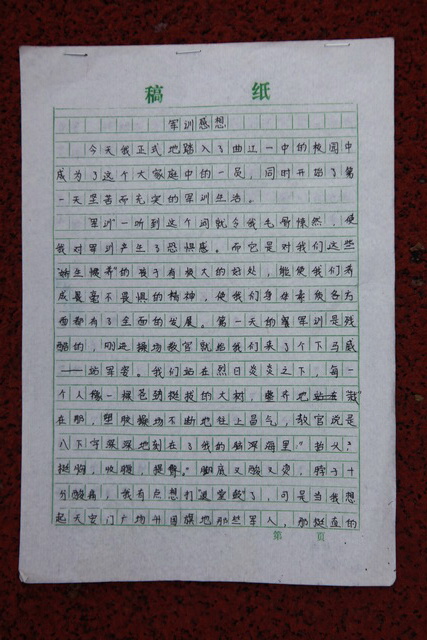 稿 纸
军训感想
今天我正式地踏入了曲江一中的校园中
成为了这个大家庭中的一员，同时开始了第
一天坚苦而充实的军训生活。
军训"一听到这个词就令我毛骨悚然，使
我对军训产生了恐惧感。而它是对我们这些
"娇生惯养"的孩子有极大的好处，能使我们养
成毫不畏惧的精神，使我们身体素质各方
面都有了全面的发展。第一天的军训是残
酷的，刚进操场教官就给我们来了个下马威
——站军姿。我们站在烈日炎炎之下，每一
个人像一棵苍劲挺拔的大树，整齐地
在那，塑胶操场不断地往上冒气，教官说是
八下字深深地刻在了我的脑深海里"抬头，
挺胸，收腹，提臀。"脚底又酸又烫，脖子十
分酸痛，我有点想打"退堂鼓"了，可是当我想
起天安门广场升国旗地那些军人，那挺直的
第 页